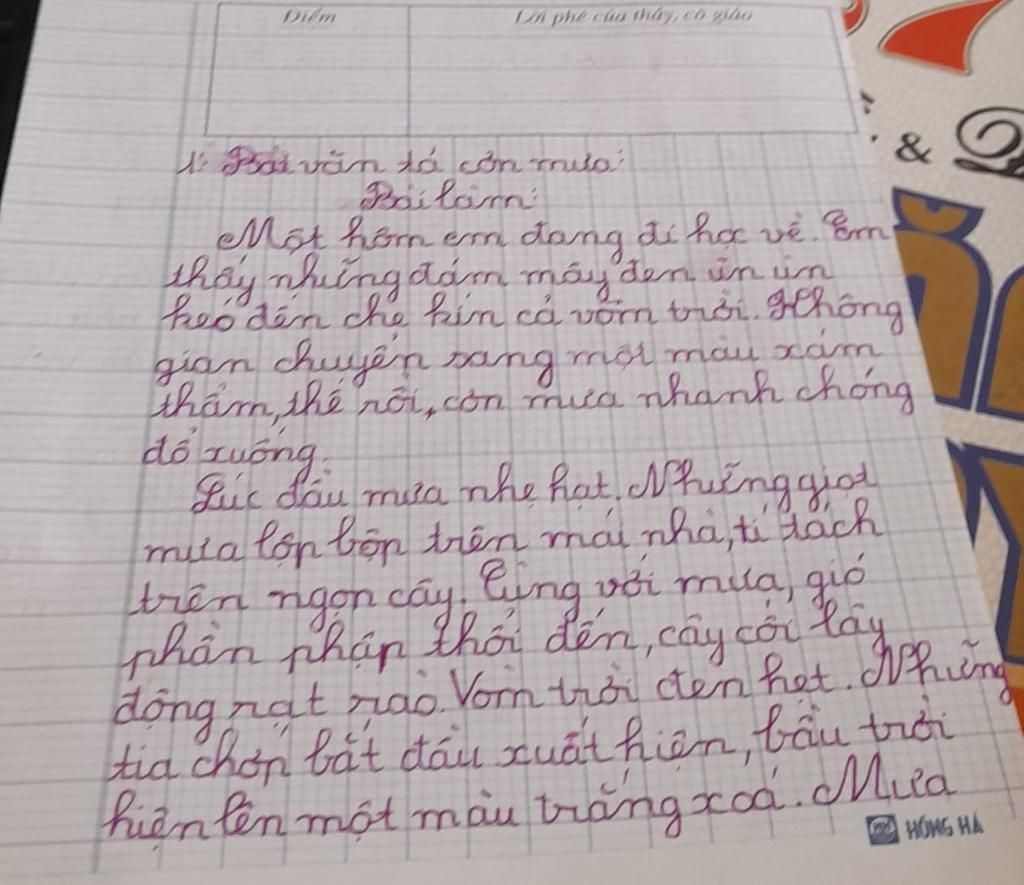 Điểm
Lời phê của thầy, cô giáo
&
1: Bài văn tả cơn mưa:
Bài làm:
Một hôm em đang đi học về. Em
thấy những đám mây đen ùn ùn
kéo đến che kín cả vòm trời. Không
gian chuyển sang một màu xám
thẫm, thế rồi, cơn mưa nhanh chóng
đổ xuống.
Lúc đầu mưa nhẹ hạt. Những giọt
mưa lộp bộp trên mái nhà, tí tách
trên ngọn cây. Cùng với mưa, gió
phần phập thổi đến, cây cối lay
động rạt rào. Vòm trời đen hẹt. Những
tia chớp bắt đầu xuất hiện, bầu trời
hiện lên một màu trắng xoá. Mưa
HỒNG HÀ